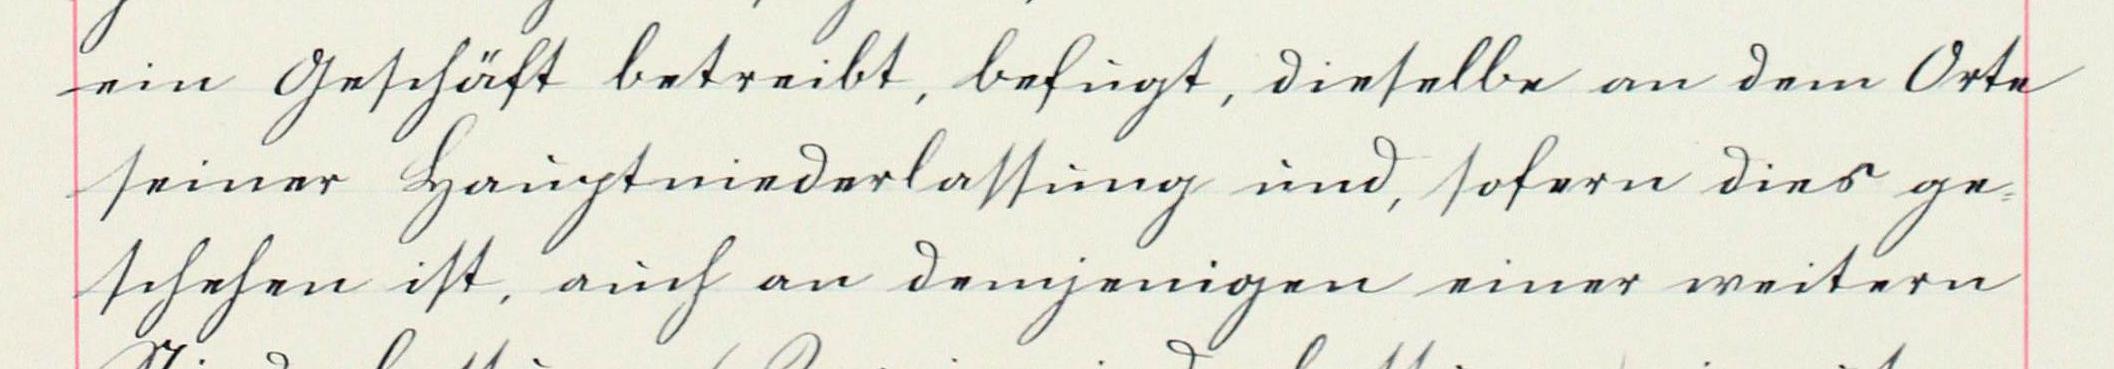 ein Geschäft betreibt, befugt, dieselbe an dem Orte
seiner Hauptniederlassung und, sofern dies ge-
schehen ist, auch an demjenigen einer weitern